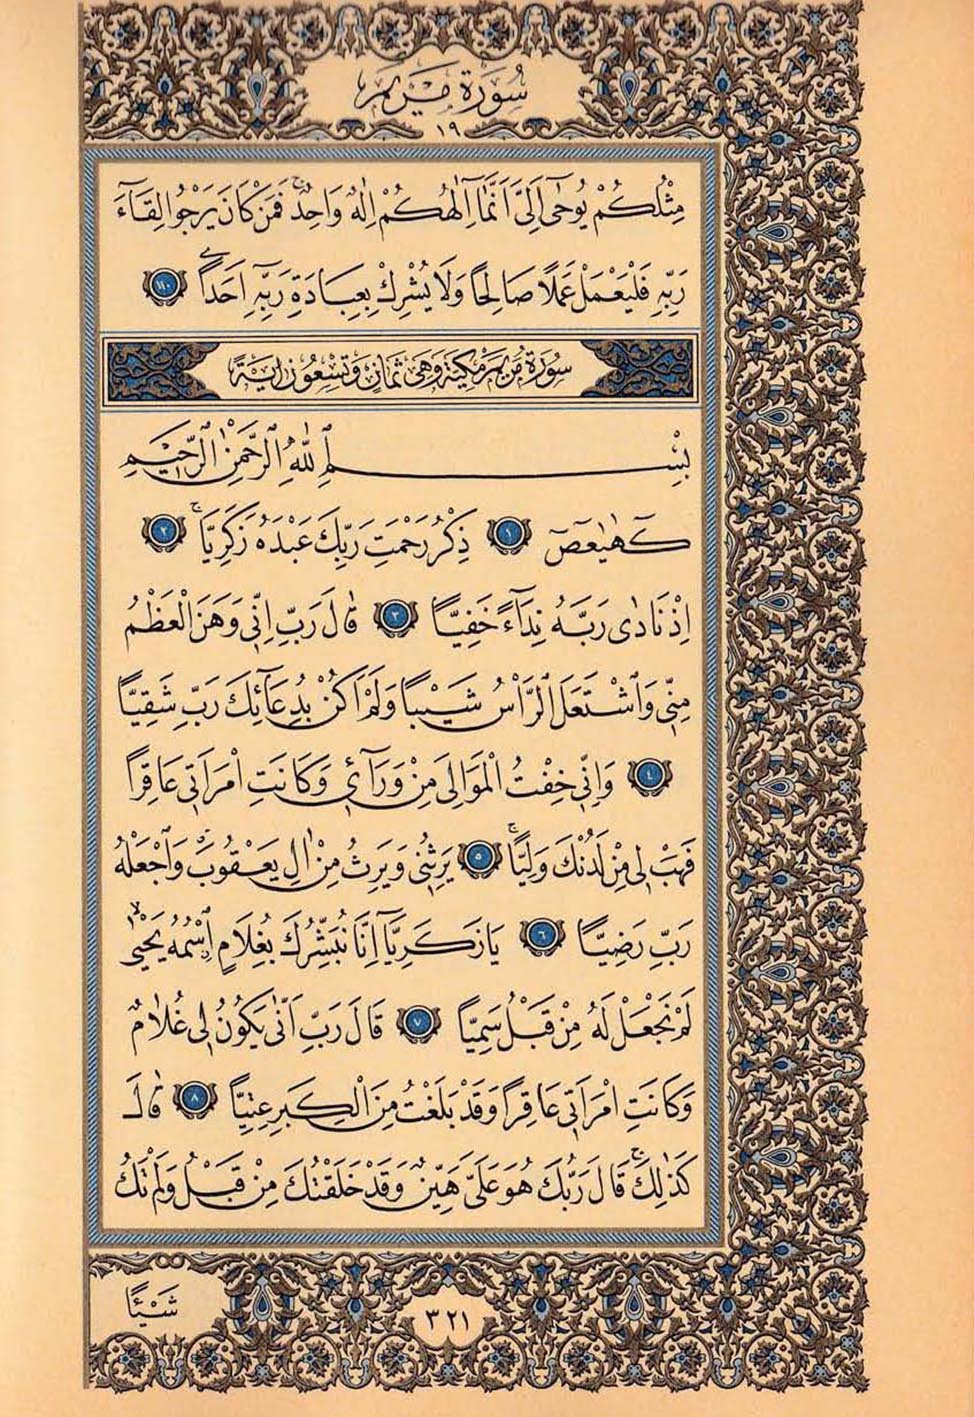 سُورَةُ مَرْيَمَ
١٩
مِثْلُكُمْ يُوحٰٓى اِلَيَّ اَنَّمَٓا اِلٰهُكُمْ اِلٰهٌ وَاحِدٌۚ فَمَنْ كَانَ يَرْجُوا لِقَٓاءَ
رَبِّهِ فَلْيَعْمَلْ عَمَلًا صَالِحًا وَلَا يُشْرِكْ بِعِبَادَةِ رَبِّهِٓ اَحَدًا ﴿١١٠﴾
سُورَةُ مَرْيَمَ مَكِّيَّةٌ وَهِيَ ثَمَانٍ وَتِسْعُونَ اٰيَةً
بِسْمِ اللّٰهِ الرَّحْمٰنِ الرَّحِيمِ
كٓهٰيٰعٓصٓ ﴿١﴾ ذِكْرُ رَحْمَتِ رَبِّكَ عَبْدَهُ زَكَرِيَّاۚ ﴿٢﴾
اِذْ نَادٰى رَبَّهُ نِدَٓاءً خَفِيًّا ﴿٣﴾ قَالَ رَبِّ اِنِّي وَهَنَ الْعَظْمُ
مِنِّي وَاشْتَعَلَ الرَّأْسُ شَيْبًا وَلَمْ اَكُنْ بِدُعَٓائِكَ رَبِّ شَقِيًّا
﴿٤﴾ وَاِنِّي خِفْتُ الْمَوَالِيَ مِنْ وَرَٓائِي وَكَانَتِ امْرَاَتِي عَاقِرًا
فَهَبْ لِي مِنْ لَدُنْكَ وَلِيًّاۚ ﴿٥﴾ يَرِثُنِي وَيَرِثُ مِنْ اٰلِ يَعْقُوبَۗ وَاجْعَلْهُ
رَبِّ رَضِيًّا ﴿٦﴾ يَا زَكَرِيَّٓا اِنَّا نُبَشِّرُكَ بِغُلَامٍ اسْمُهُ يَحْيٰىۙ
لَمْ نَجْعَلْ لَهُ مِنْ قَبْلُ سَمِيًّا ﴿٧﴾ قَالَ رَبِّ اَنّٰى يَكُونُ لِي غُلَامٌ
وَكَانَتِ امْرَاَتِي عَاقِرًا وَقَدْ بَلَغْتُ مِنَ الْكِبَرِ عِتِيًّا ﴿٨﴾ قَالَ
كَذٰلِكَۚ قَالَ رَبُّكَ هُوَ عَلَيَّ هَيِّنٌ وَقَدْ خَلَقْتُكَ مِنْ قَبْلُ وَلَمْ تَكُ
شَيْئًا
٣٢١